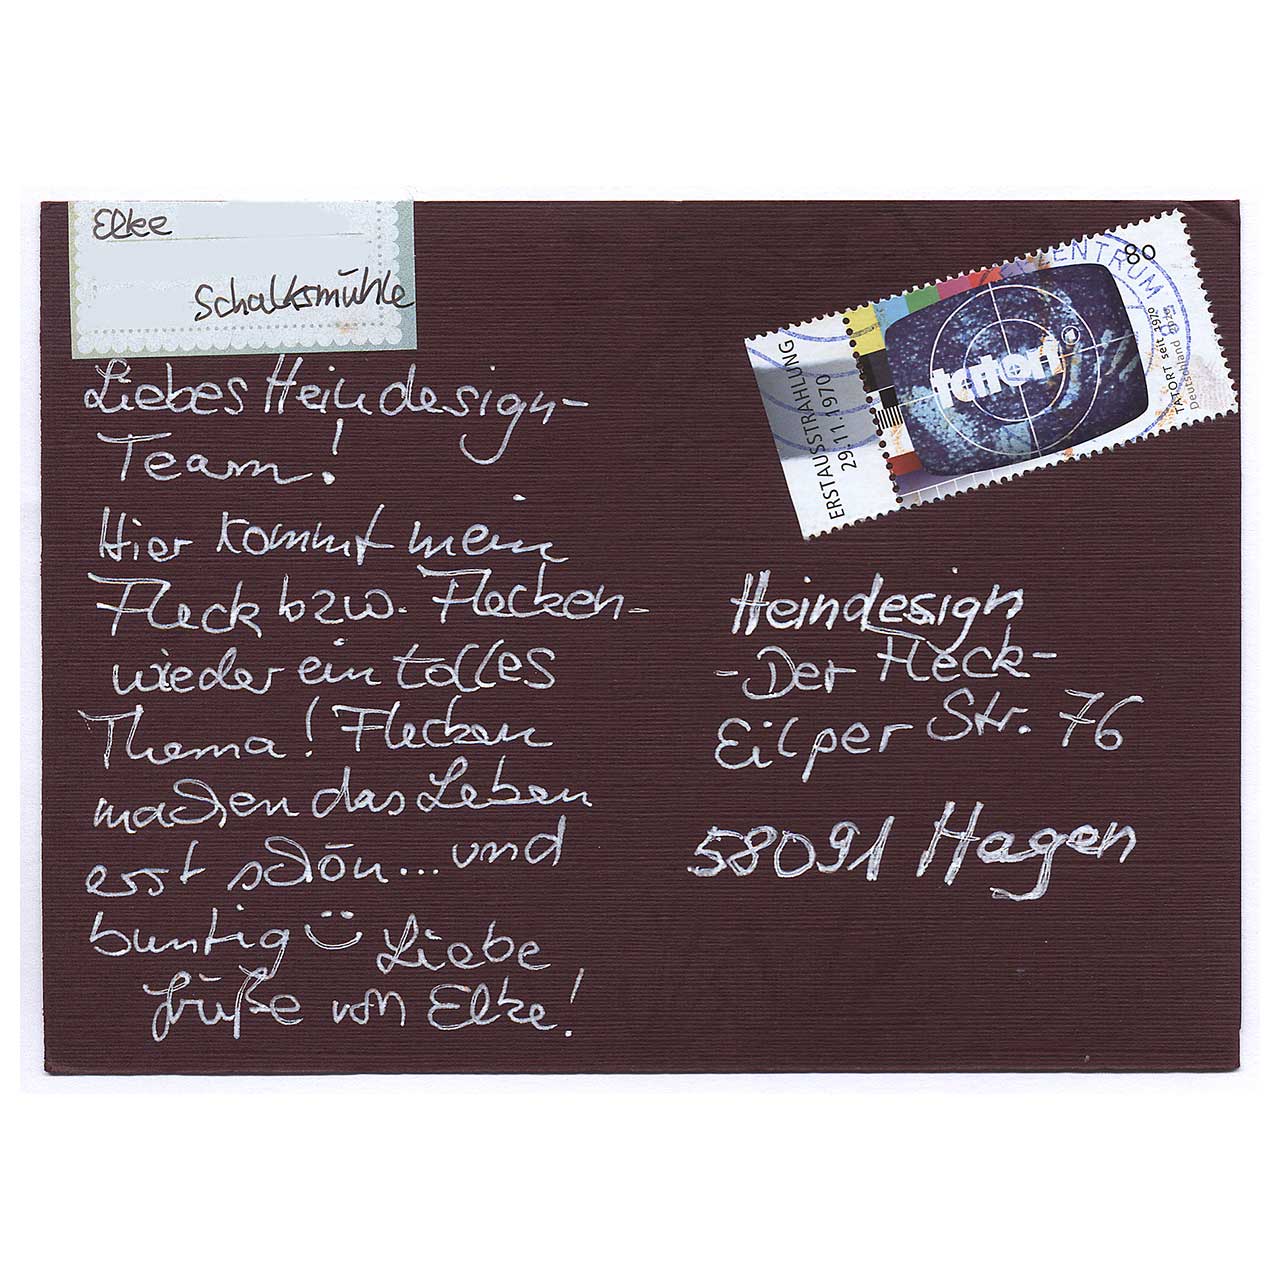 Elke
Schalksmühle
Liebes Heindesign-
Team!
Hier kommt mein
Fleck bzw. Flecken-
wieder ein tolles
Thema! Flecken
machen das Leben
erst schön... und
buntig Liebe
Grüße von Elke!
ERSTAUSSTRAHLUNG
29.11.1970
tatort
80
TATORT seit 1970
Deutschland
ZENTRUM
Heindesign
-Der Fleck-
Eilper Str. 76
58091 Hagen